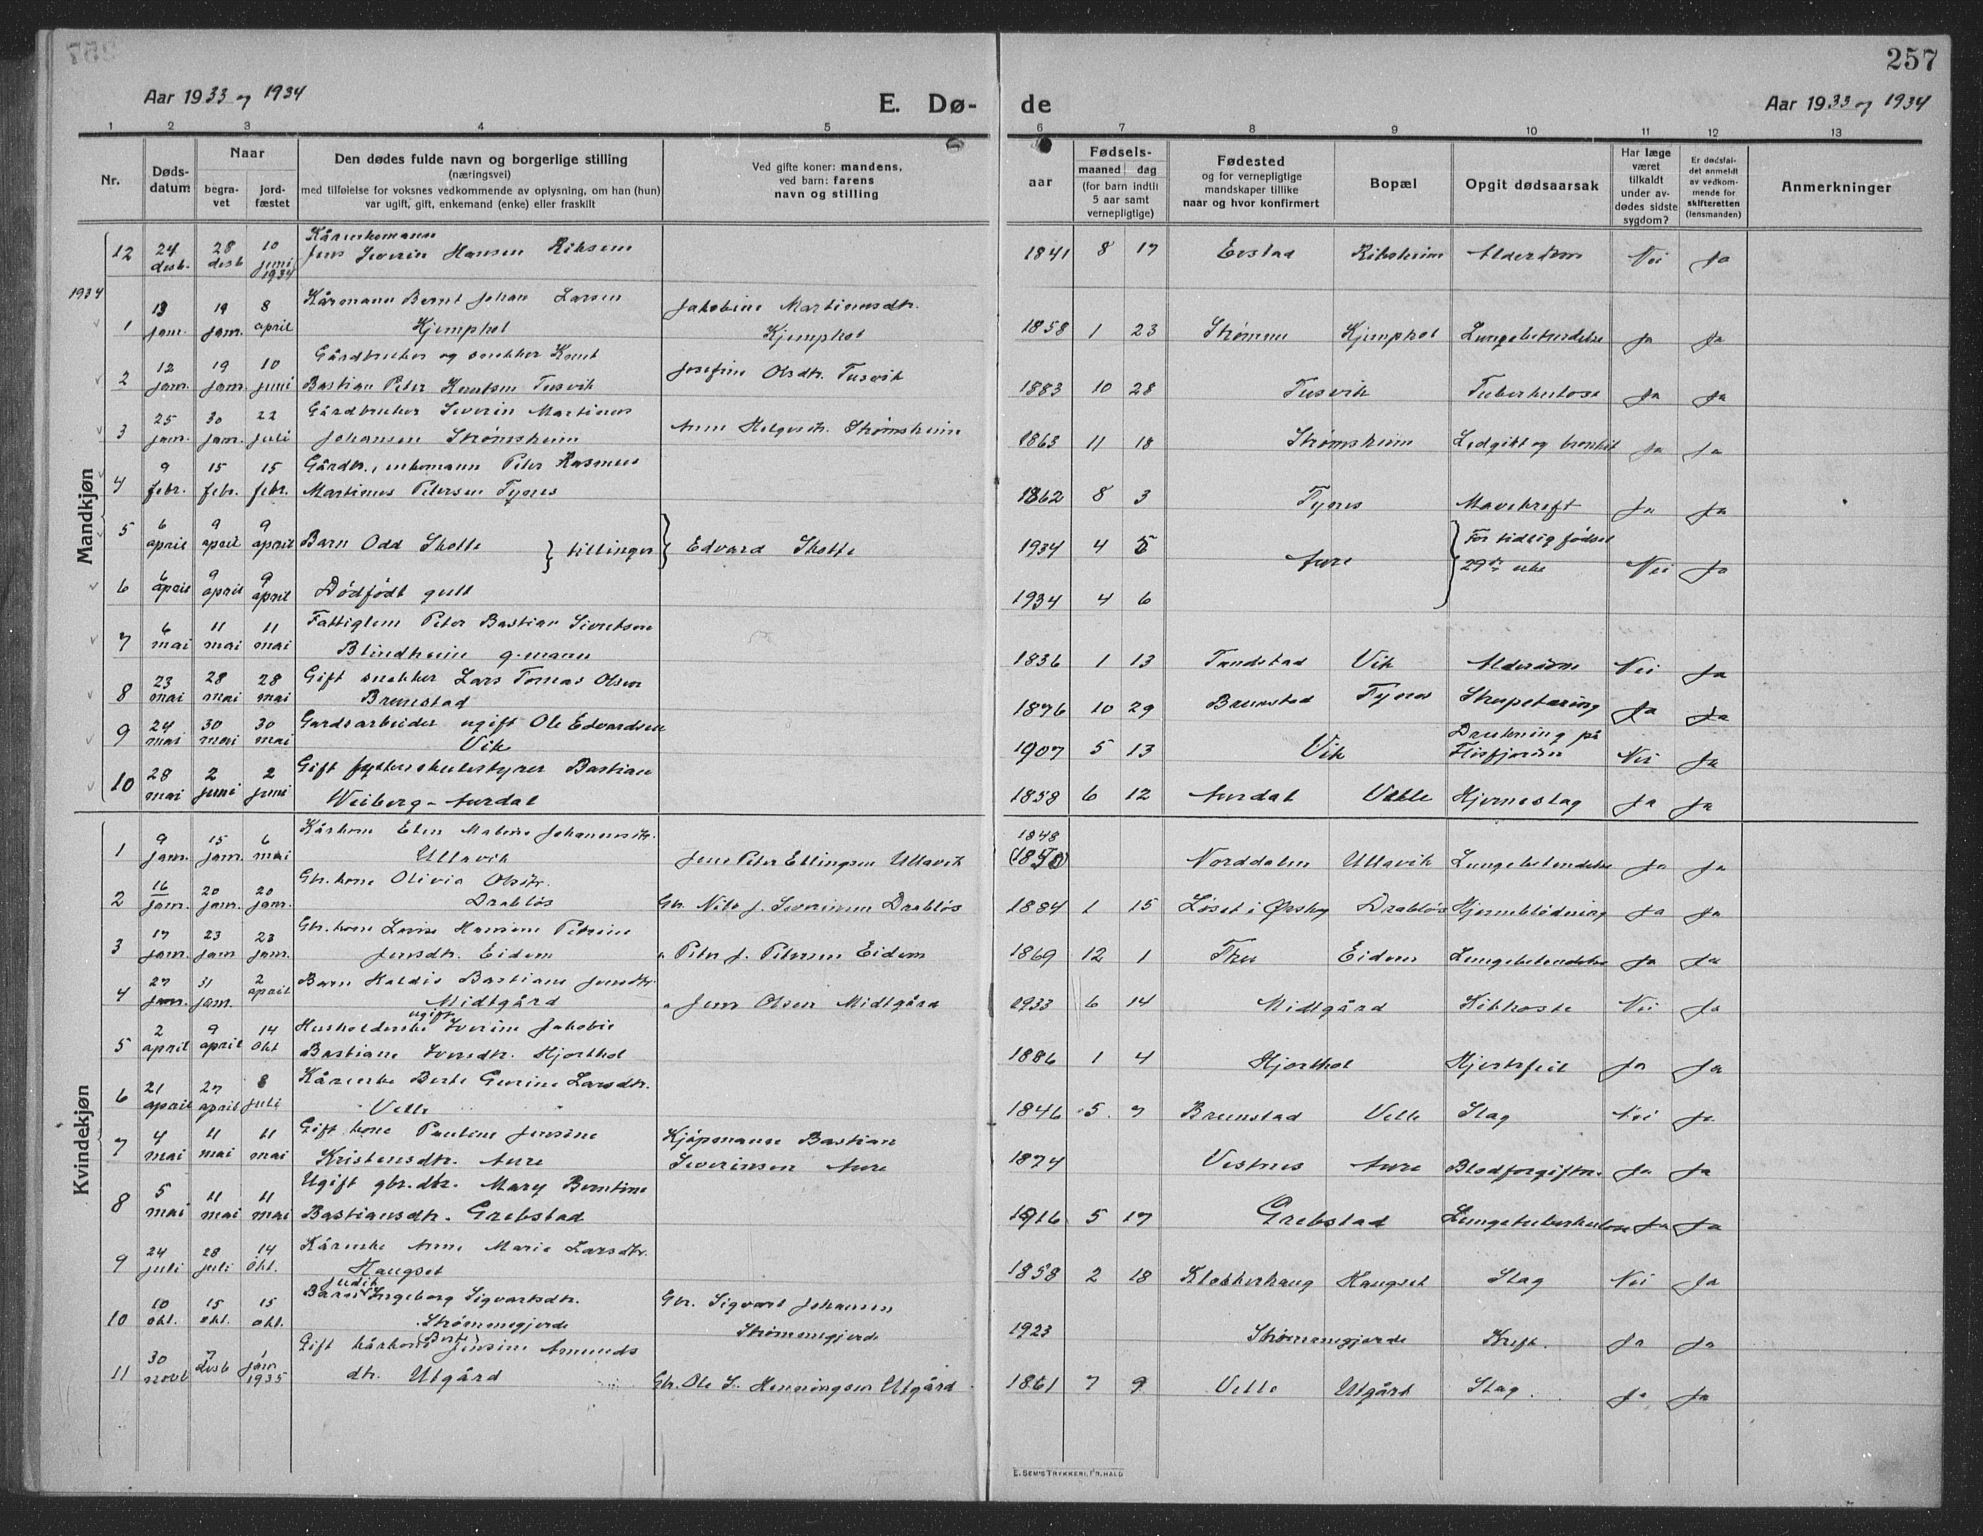 257
Aar 1933 og 1934
E. Dø-
de
Aar 1933 og 1934
1 2 3 4 5 6 7 8 9 10 11 12 13
Nr.
Døds-
datum
Naar
begra-
vet
jord-
fæstet
Den dødes fulde navn og borgerlige stilling
(næringsvei)
med tilføielse for voksnes vedkommende av oplysning, om han (hun)
var ugift, gift, enkemand (enke) eller fraskilt
Ved gifte koner: mandens,
ved barn: farens
navn og stilling
Fødsels-
aar
maaned dag
(for barn indtil
5 aar samt
vernepligtige)
Fødested
og for vernepligtige
mandskaper tillike
naar og hvor konfirmert
Bopæl
Opgit dødsaarsak
Har læge
været
tilkaldt
under av-
dødes sidste
sygdom?
Er dødsfal-
det anmeldt
av vedkom-
mende for
skifteretten
(lensmanden)
Anmerkninger
Mandkjøn
12 24 desb. 28 desb 10 juni 1934 Kårenkemann
Jens Severin Hansen Riksem 1841 8 17 Evstad Riksheim Alderdom Nei Ja
1934
1 13 jan. 19 jan. 8 april Kårmann Bernt Johan Larsen
Kjemphol Jakobine Martinusdtr.
Kjemphol 1858 1 23 Strømme Kjemphol Lungebetendelse Ja Ja
2 12 jan. 19 jan. 10 juni Gårdbruker og snekker Knut
Bastian Peter Knutsen Tusvik Josefine Olsdtr. Tusvik 1883 10 28 Tusvik Tuberkulose Ja Ja
3 25 jan. 30 jan. 22 juli Gårdbruker Severin Martinus
Johansen Strømsheim Anne Helgesdtr. Strømsheim 1863 11 18 Strømsheim Ledgikt og bronkit Ja Ja
4 9 febr. 15 febr. 15 febr. Gårdbr., enkemann Peter Rasmus
Martinus Petersen Tynes 1862 8 3 Tynes Mavekreft Ja Ja
5 6 april 9 april 9 april Barn Odd Skotte } tvillinger } Edvard Skotte 1934 4 5 Aure For tidlig fødsel
29de uke Nei Ja
6 6 april 9 april 9 april Dødfødt gutt 1934 4 6
7 6 mai 11 mai 11 mai Fattiglem Peter Bastian Sivertsen
Blindheim g.mann 1836 1 13 Tandstad Vik Alderdom Nei Ja
8 23 mai 28 mai 28 mai Gift snekker Lars Tomas Olsen
Brunstad 1876 10 29 Brunstad Tynes Strupetæring Ja Ja
9 24 mai 30 mai 30 mai Gardsarbeider ugift Ole Edvardsen
Vik 1907 5 13 Vik Drukning på
Flisfjorden Nei Ja
10 28 mai 2 juni 2 juni Gift fylkesskulestyrer Bastian
Weiberg-Aurdal 1858 6 12 Aurdal Velle Hjerneslag Ja Ja
Kvindekjøn
1 9 jan. 15 jan. 6 mai Kårkone Elen Malene Johannesdtr.
Ullavik Jens Peter Ellingsen Ullavik 1848
(1850) Norddalen Ullavik Lungebetendelse Ja Ja
2 16 jan. 20 jan. 20 jan. Gbr. kone Olivia Olsdtr.
Drabløs Gbr. Nils J. Severinsen Drabløs 1884 1 15 Løset i Ørskog Drabløs Hjerneblødning Ja Ja
3 17 jan. 23 jan. 23 jan. Gbr. kone Lovise Hansine Petrine
Jensdtr. Eidem " Peter J. Petersen Eidem 1869 12 1 Eidem Lungebetendelse Ja Ja
4 27 jan. 31 jan. 2 april Barn Haldis Bastiane Jensdtr.
Midtgård " Jens Olsen Midtgård 1933 6 14 Midtgård Kikhoste Nei Ja
5 2 april 9 april 14 okt ugift
Husholderske Iverine Jakobie
Bastiane Iversdtr. Hjorthol 1886 1 4 Hjorthol Hjertefeil Ja Ja
6 21 april 27 april 8 juli Kårenke Berte Gurine Larsdtr.
Velle 1846 5 7 Brunstad Velle Slag Nei Ja
7 4 mai 11 mai 11 mai Gift kone Pauline Jensine
Kristensdtr. Aure Kjøpmann Bastian
Severinsen Aure 1874 Vestnes Aure Blodforgiftn. Ja Ja
8 5 mai 11 mai 11 mai Ugift gbr.dtr. Mary Berntine
Bastiansdtr. Grebstad 1916 5 17 Grebstad Lungetuberkulose Ja Ja
9 24 juli 28 juli 14 okt. Kårenke Anne Marie Larsdtr.
Haugset 1858 2 18 Klokkerhaug Haugset Slag Nei Ja
10 10 okt. 15 okt. 15 okt. Judik
Barn Ingeborg Sigvartsdtr.
Strømmegjerde Gbr. Sigvart Johansen
Strømmegjerde 1923 Strømmegjerde Kreft. Ja Ja
11 30 novb 7 desb 1 jan 1935 Gift kårkone (Berte) Jensine Amunds
dtr. Utgård Gbr. Ole S. Henningsen Utgård 1861 7 9 Velle Utgård Slag. Ja Ja
E. SEM'S TRYKKERI, FR.HALD